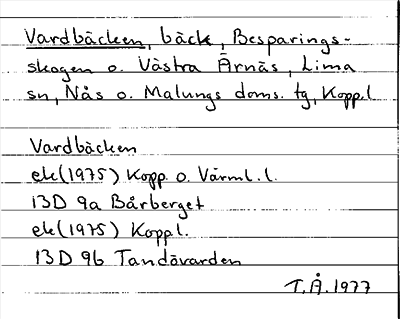 Vardbäcken, bäck, Besparings-
skogen o. Västra Ärnäs, Lima
sn, Nås o. Malungs doms. tg, Kopp.l
Vardbäcken
ek(1975) Kopp. o. Värml. l.
13D 9a Bårberget
ek(1975) Koppl.
13D 9b Tandövarden
T.Å.1977